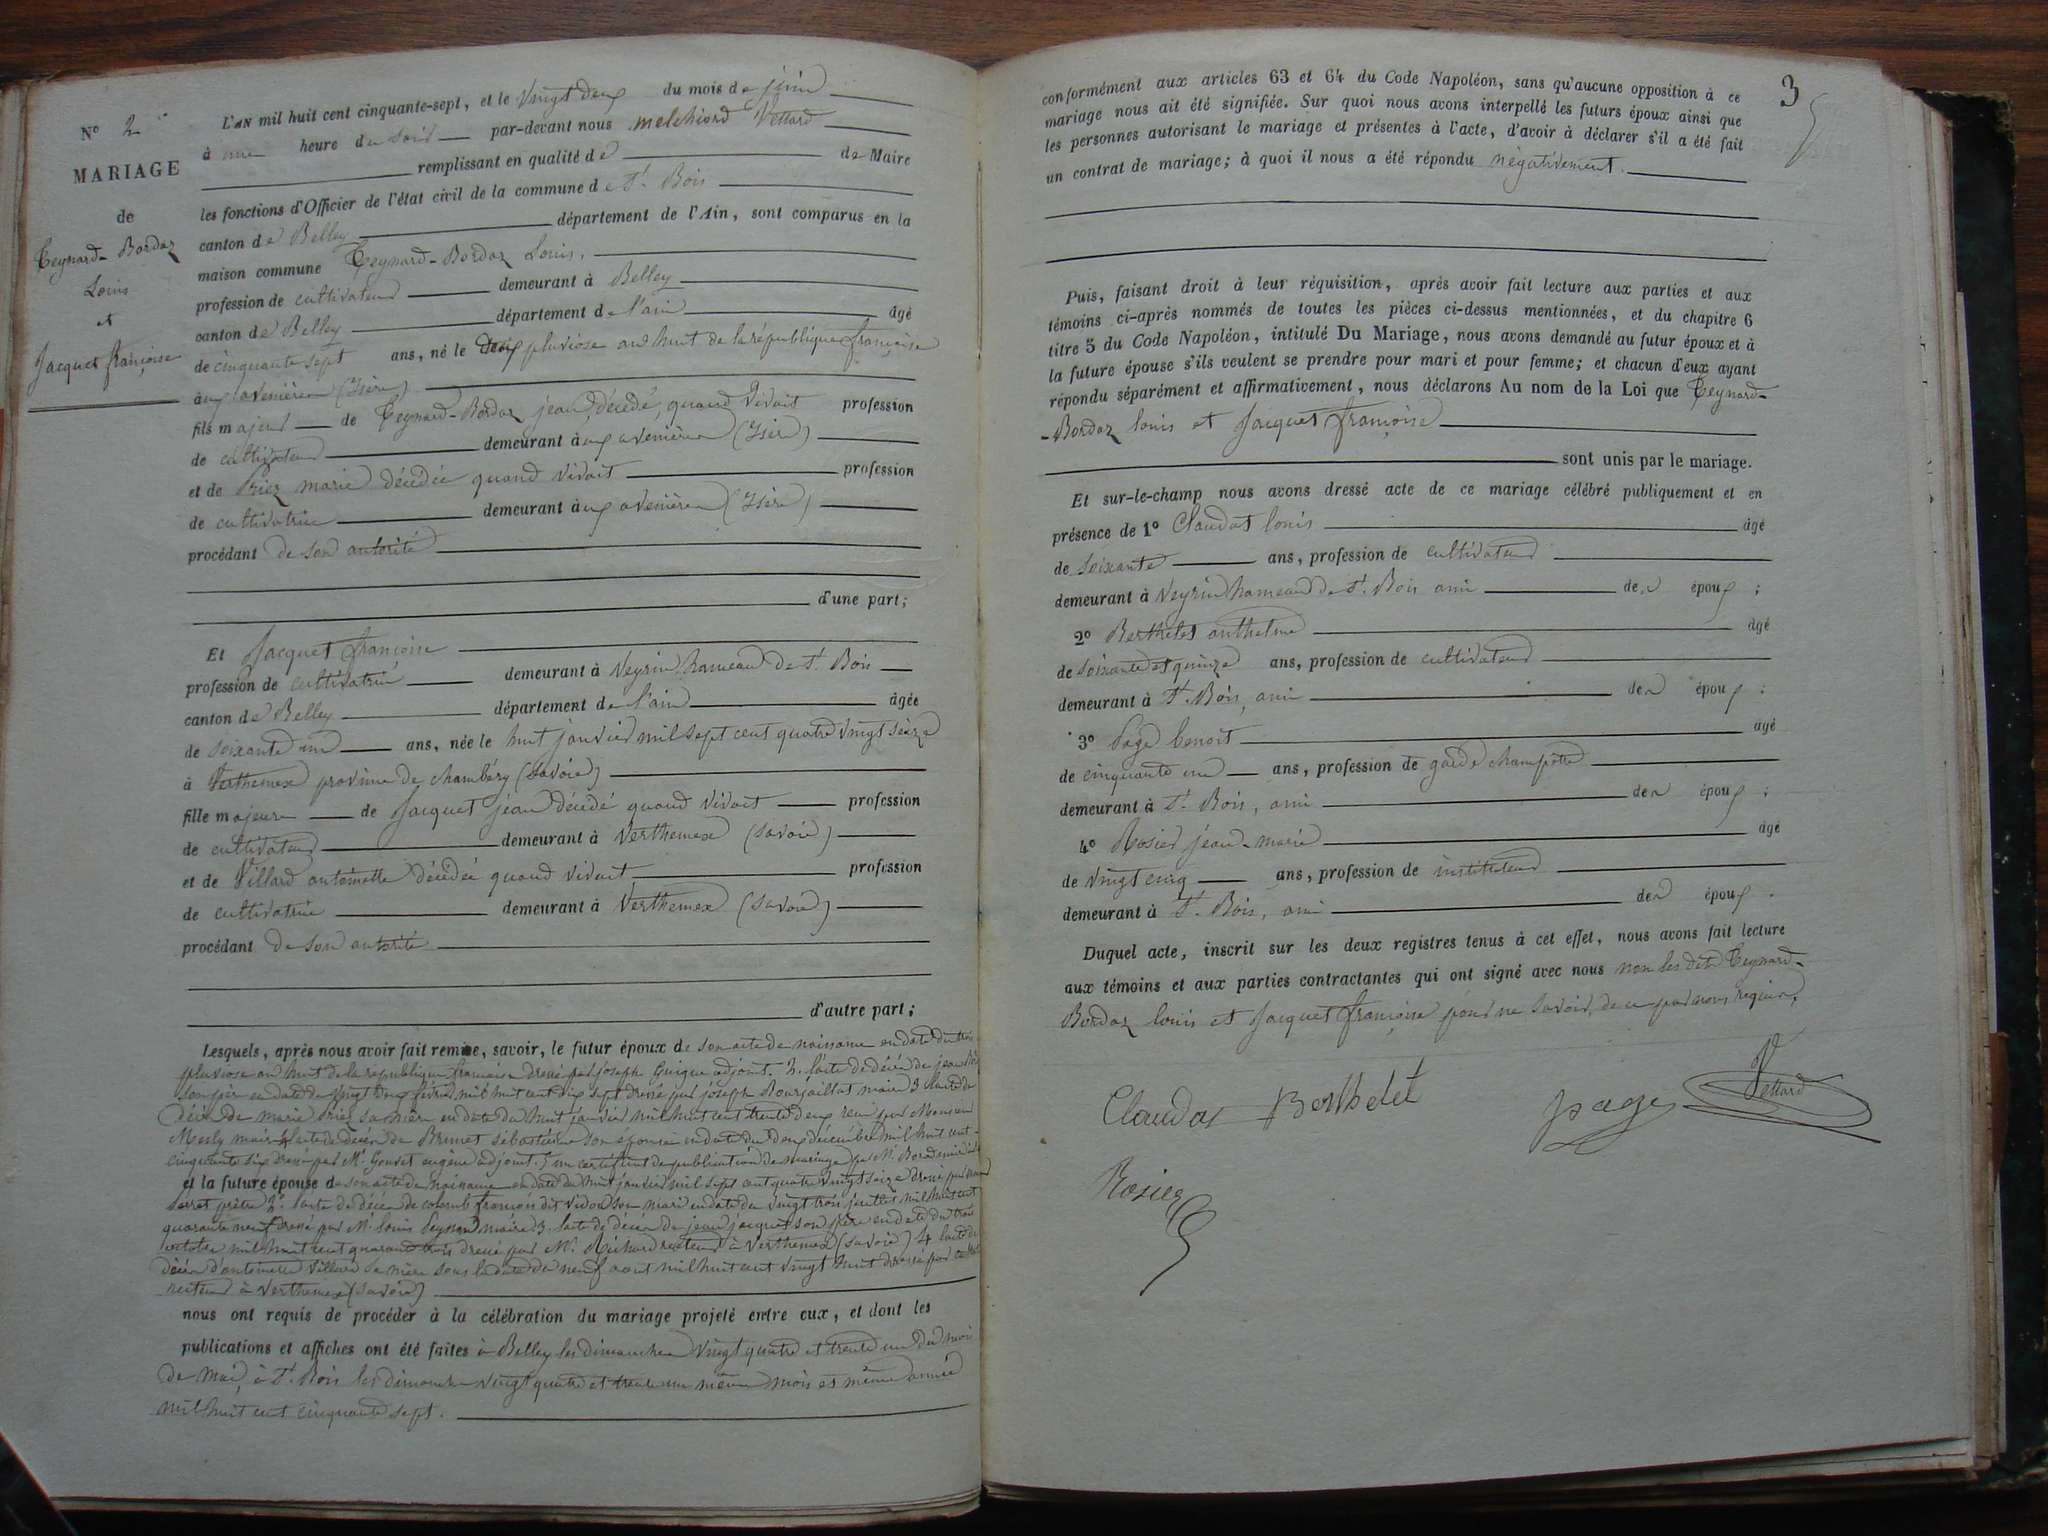 N° 2
MARIAGE
de
Teynard-Bordaz
Louis
et
Jacquet françoise
L'AN mil huit cent cinquante-sept, et le vingt deux du mois de juin
à une heure du soir par-devant nous melchiord Vettard
remplissant en qualité de de Maire
les fonctions d'Officier de l'état civil de la commune de St Bois
canton de Belley département de l'Ain, sont comparus en la
maison commune Teynard-Bordaz Louis,
profession de cultivateur demeurant à Belley
canton de Belley département de l'ain âgé
de cinquante sept ans, né le pluviose an huit de la république française
aux avenières (Isère)
fils majeur de Teynard-Bordaz jean, décédé, quand vivait profession
de cultivateur demeurant aux avenières (Isère)
et de Priez marie décédée quand vivait profession
de cultivatrice demeurant aux avenières (Isère)
procédant de son autorité
d'une part;
Et Jacquet françoise
profession de cultivatrice demeurant à Veyrin hameau de St Bois
canton de Belley département de l'ain âgée
de soixante un ans, née le huit janvier mil sept cent quatre vingt seize
à Verthemex province de chambéry (Savoie)
fille majeure de Jacquet jean décédé quand vivait profession
de cultivateur demeurant à Verthemex (Savoie)
et de Villard antoinette décédée quand vivait profession
de cultivatrice demeurant à Verthemex (Savoie)
procédant de son autorité
d'autre part;
Lesquels, après nous avoir fait remise, savoir, le futur époux de son acte de naissance en date du trois
pluviose an huit de la republique francaise dressé par joseph Guigue adjoint. 2. l'acte de décès de jean
son père en date du vingt deux février mil huit cent dix sept dressé par joseph Bourjaillat maire 3 l'acte de
décès de marie priez sa mère en date du huit janvier mil huit cent trente deux reçu par Monsieur
Mesly maire 4 l'acte de décès de Brunet sébastienne son épouse en date du deux décembre mil huit cent
cinquante six dressé par Mr. Goudet eugène adjoint. 5 un certificat de publication de mariage par Mr.
et la future épouse de son acte de naissance en date du huit janvier mil sept cent quatre vingt seize dressé par
prêtre 2° l'acte de décès de colomb françois dit vidon son mari en date du vingt trois juillet mil huit cent
quarante neuf dressé par Mr. louis Peynard maire 3. l'acte de décès de jean jacquet son père en date du trois
octobre mil huit cent quarante trois dressé par Mr. Richard recteur à Verthemex (savoie) 4 l'acte de
décès d'antoinette Villard sa mère sous la date du neuf aout mil huit cent vingt huit dressé par
recteur à Verthemex (savoie)
nous ont requis de procéder à la célébration du mariage projeté entre eux, et dont les
publications et affiches ont été faites à Belley les dimanches vingt quatre et trente un du mois
de Mai, à St. Bois les dimanches vingt quatre et trente un même mois et même année
mil huit cent cinquante sept.
3
conformément aux articles 63 et 64 du Code Napoléon, sans qu'aucune opposition à ce
mariage nous ait été signifiée. Sur quoi nous avons interpellé les futurs époux ainsi que
les personnes autorisant le mariage et présentes à l'acte, d'avoir à déclarer s'il a été fait
un contrat de mariage; à quoi il nous a été répondu négativement.
Puis, faisant droit à leur réquisition, après avoir fait lecture aux parties et aux
témoins ci-après nommés de toutes les pièces ci-dessus mentionnées, et du chapitre 6
titre 5 du Code Napoléon, intitulé Du Mariage, nous avons demandé au futur époux et à
la future épouse s'ils veulent se prendre pour mari et pour femme; et chacun d'eux ayant
répondu séparément et affirmativement, nous déclarons Au nom de la Loi que Teynard-
-Bordaz louis et Jacquet françoise
sont unis par le mariage.
Et sur-le-champ nous avons dressé acte de ce mariage célébré publiquement et en
présence de 1° Claudat louis âgé
de soixante ans, profession de cultivateur
demeurant à Veyrin hameau de St. Bois ami des époux;
2° Berthelet anthelme âgé
de soixante et quinze ans, profession de cultivateur
demeurant à St. Bois, ami des époux;
3° Page benoit âgé
de cinquante un ans, profession de garde champêtre
demeurant à St. Bois, ami des époux;
4° Rosier jean-marie âgé
de vingt cinq ans, profession de instituteur
demeurant à St. Bois, ami des époux.
Duquel acte, inscrit sur les deux registres tenus à cet effet, nous avons fait lecture
aux témoins et aux parties contractantes qui ont signé avec nous non les dits Teynard-
Bordaz louis et Jacquet françoise pour ne savoir, de ce par nous requis.
Claudat Berthelet page Vettard
Rosier